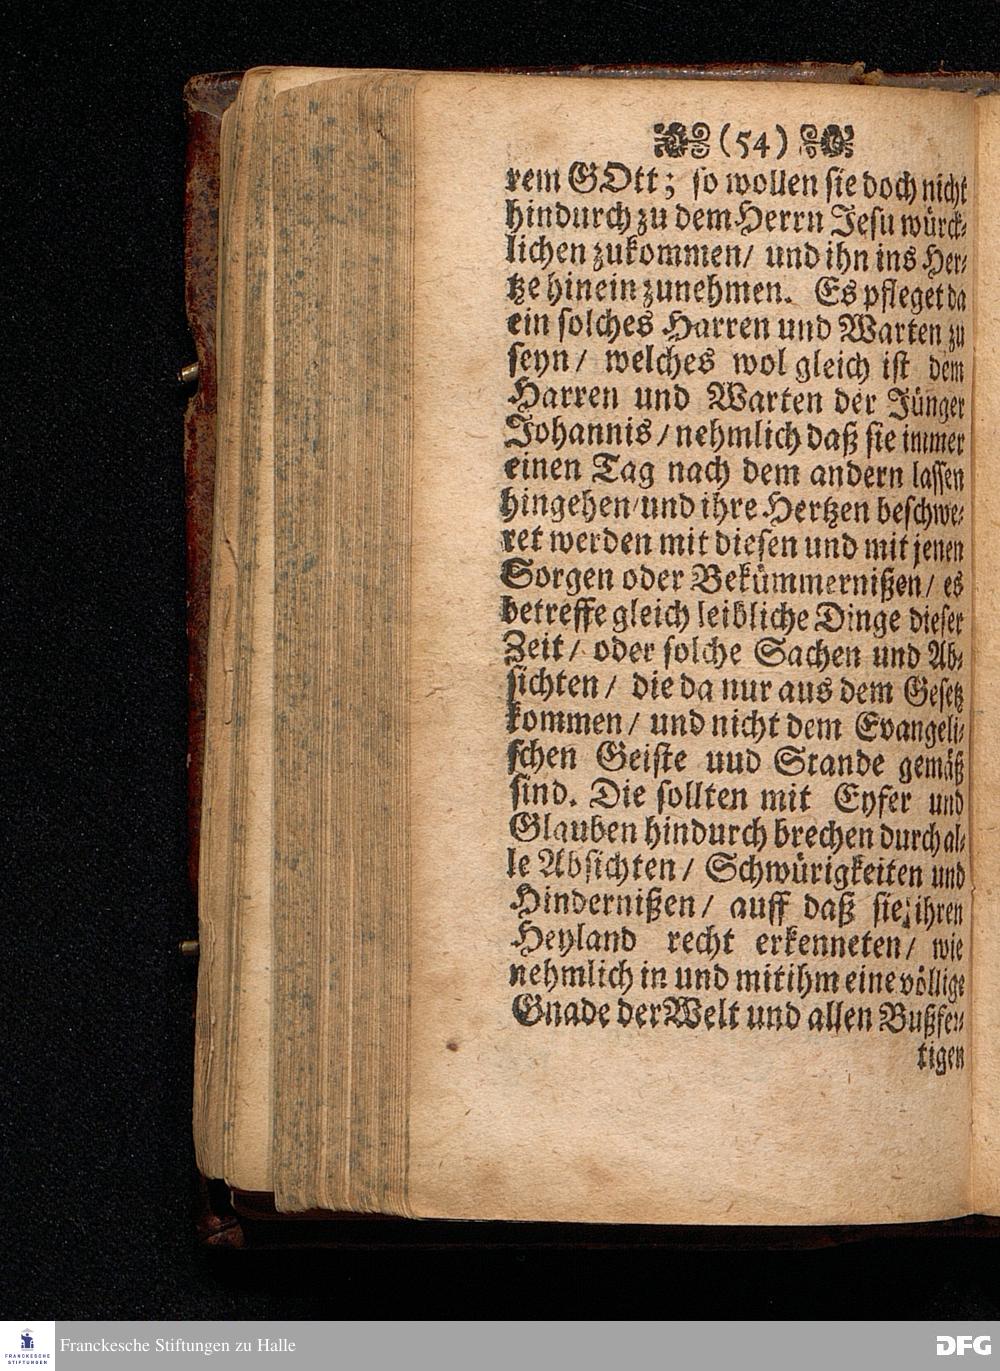 (54)
rem GOtt; so wollen sie doch nicht
hindurch zu dem Herrn Jesu würck-
lichen zukommen/ und ihn ins Her-
tze hinein zunehmen. Es pfleget da
ein solches Harren und Warten zu
seyn/ welches wol gleich ist dem
Harren und Warten der Jünger
Johannis/ nehmlich daß sie immer
einen Tag nach dem andern lassen
hingehen/ und ihre Hertzen beschwe-
ret werden mit diesen und mit jenen
Sorgen oder Bekümmernißen/ es
betreffe gleich leibliche Dinge dieser
Zeit/ oder solche Sachen und Ab-
sichten/ die da nur aus dem Gesetz
kommen/ und nicht dem Evangeli-
schen Geiste uud Stande gemäß
sind. Die sollten mit Eyfer und
Glauben hindurch brechen durch al-
le Absichten/ Schwürigkeiten und
Hindernißen/ auff daß sie ihren
Heyland recht erkenneten/ wie
nehmlich in und mit ihm eine völlige
Gnade der Welt und allen Bußfer-
tigen
FRANCKESCHE
STIFTUNGEN
Franckesche Stiftungen zu Halle
DFG